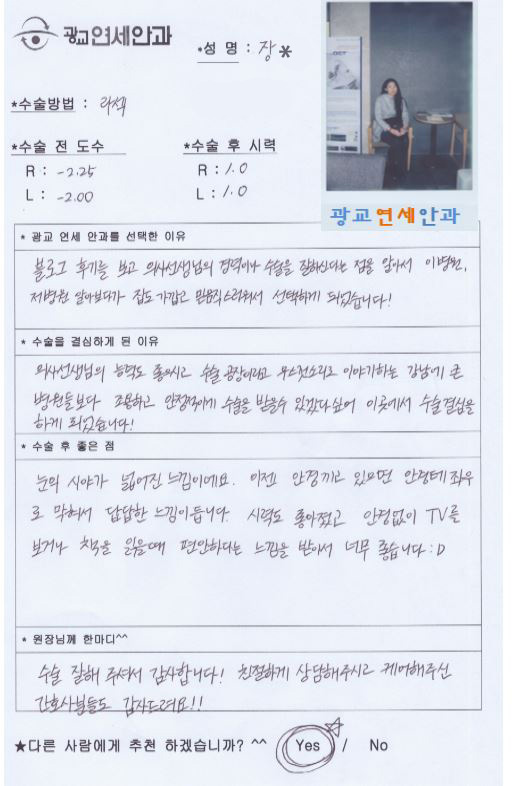 광교연세안과
*성 명 : 장*
*수술방법 : 라섹
*수술 전 도수
*수술 후 시력
R : -2.25
R : 1.0
L : -2.00
L : 1.0
광교연세안과
* 광교 연세 안과를 선택한 이유
블로그 후기를 보고 의사선생님의 경력이나 수술을 잘하신다는 점을 알아서 이병원,
저병원 알아보다가 집도 가깝고 믿음직스러워서 선택하게 되었습니다!
* 수술을 결심하게 된 이유
의사선생님의 능력도 좋으시고 수술 공장이라고 우스갯소리로 이야기하는 강남에 큰
병원들보다 조용하고 안정적이게 수술을 받을수 있겠다 싶어 이곳에서 수술결심을
하게 되었습니다!
* 수술 후 좋은 점
눈의 시야가 넓어진 느낌이에요. 이전 안경끼고 있으면 안경테 좌우
로 막혀서 답답한 느낌이 듭니다. 시력도 좋아졌고 안경없이 TV를
보거나 책을 읽을때 편안하다는 느낌을 받아서 너무 좋습니다 :D
* 원장님께 한마디^^
수술 잘해 주셔서 감사합니다! 친절하게 상담해주시고 케어해주신
간호사분들도 감사드려요!!
★다른 사람에게 추천 하겠습니까? ^^ Yes / No